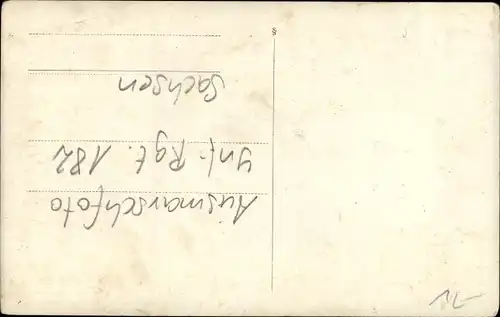 Ausmarschfoto
Inf. Rgt. 182
Sachsen